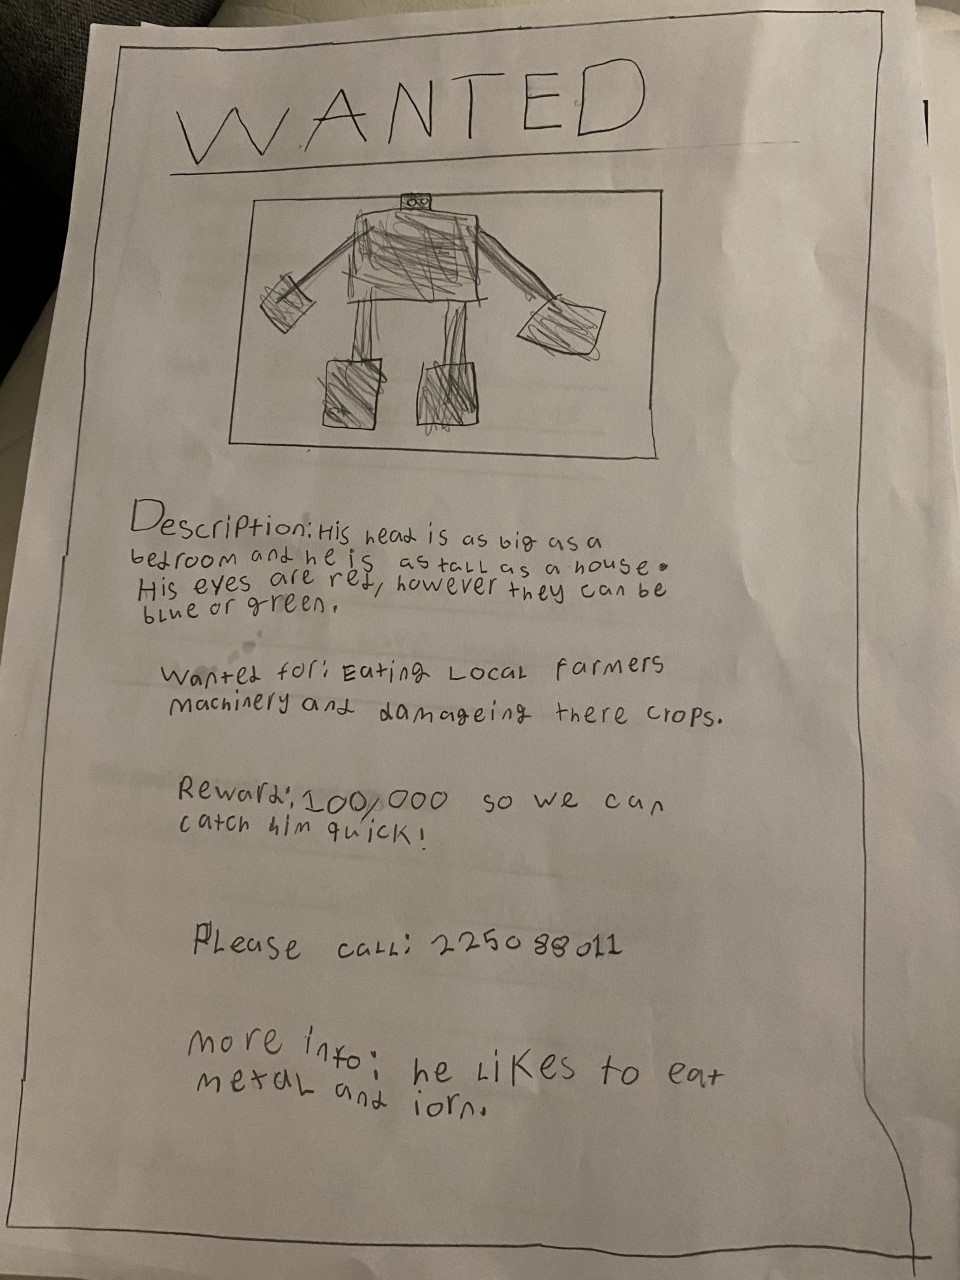 WANTED
Description: His head is as big as a
bedroom and he is as tall as a house.
His eyes are red, however they can be
blue or green.
Wanted for: Eating Local farmers
machinery and damageing there crops.
Reward: 100,000 so we can
catch him quick!
Please call: 225088011
more info: he Likes to eat
metal and iorn.